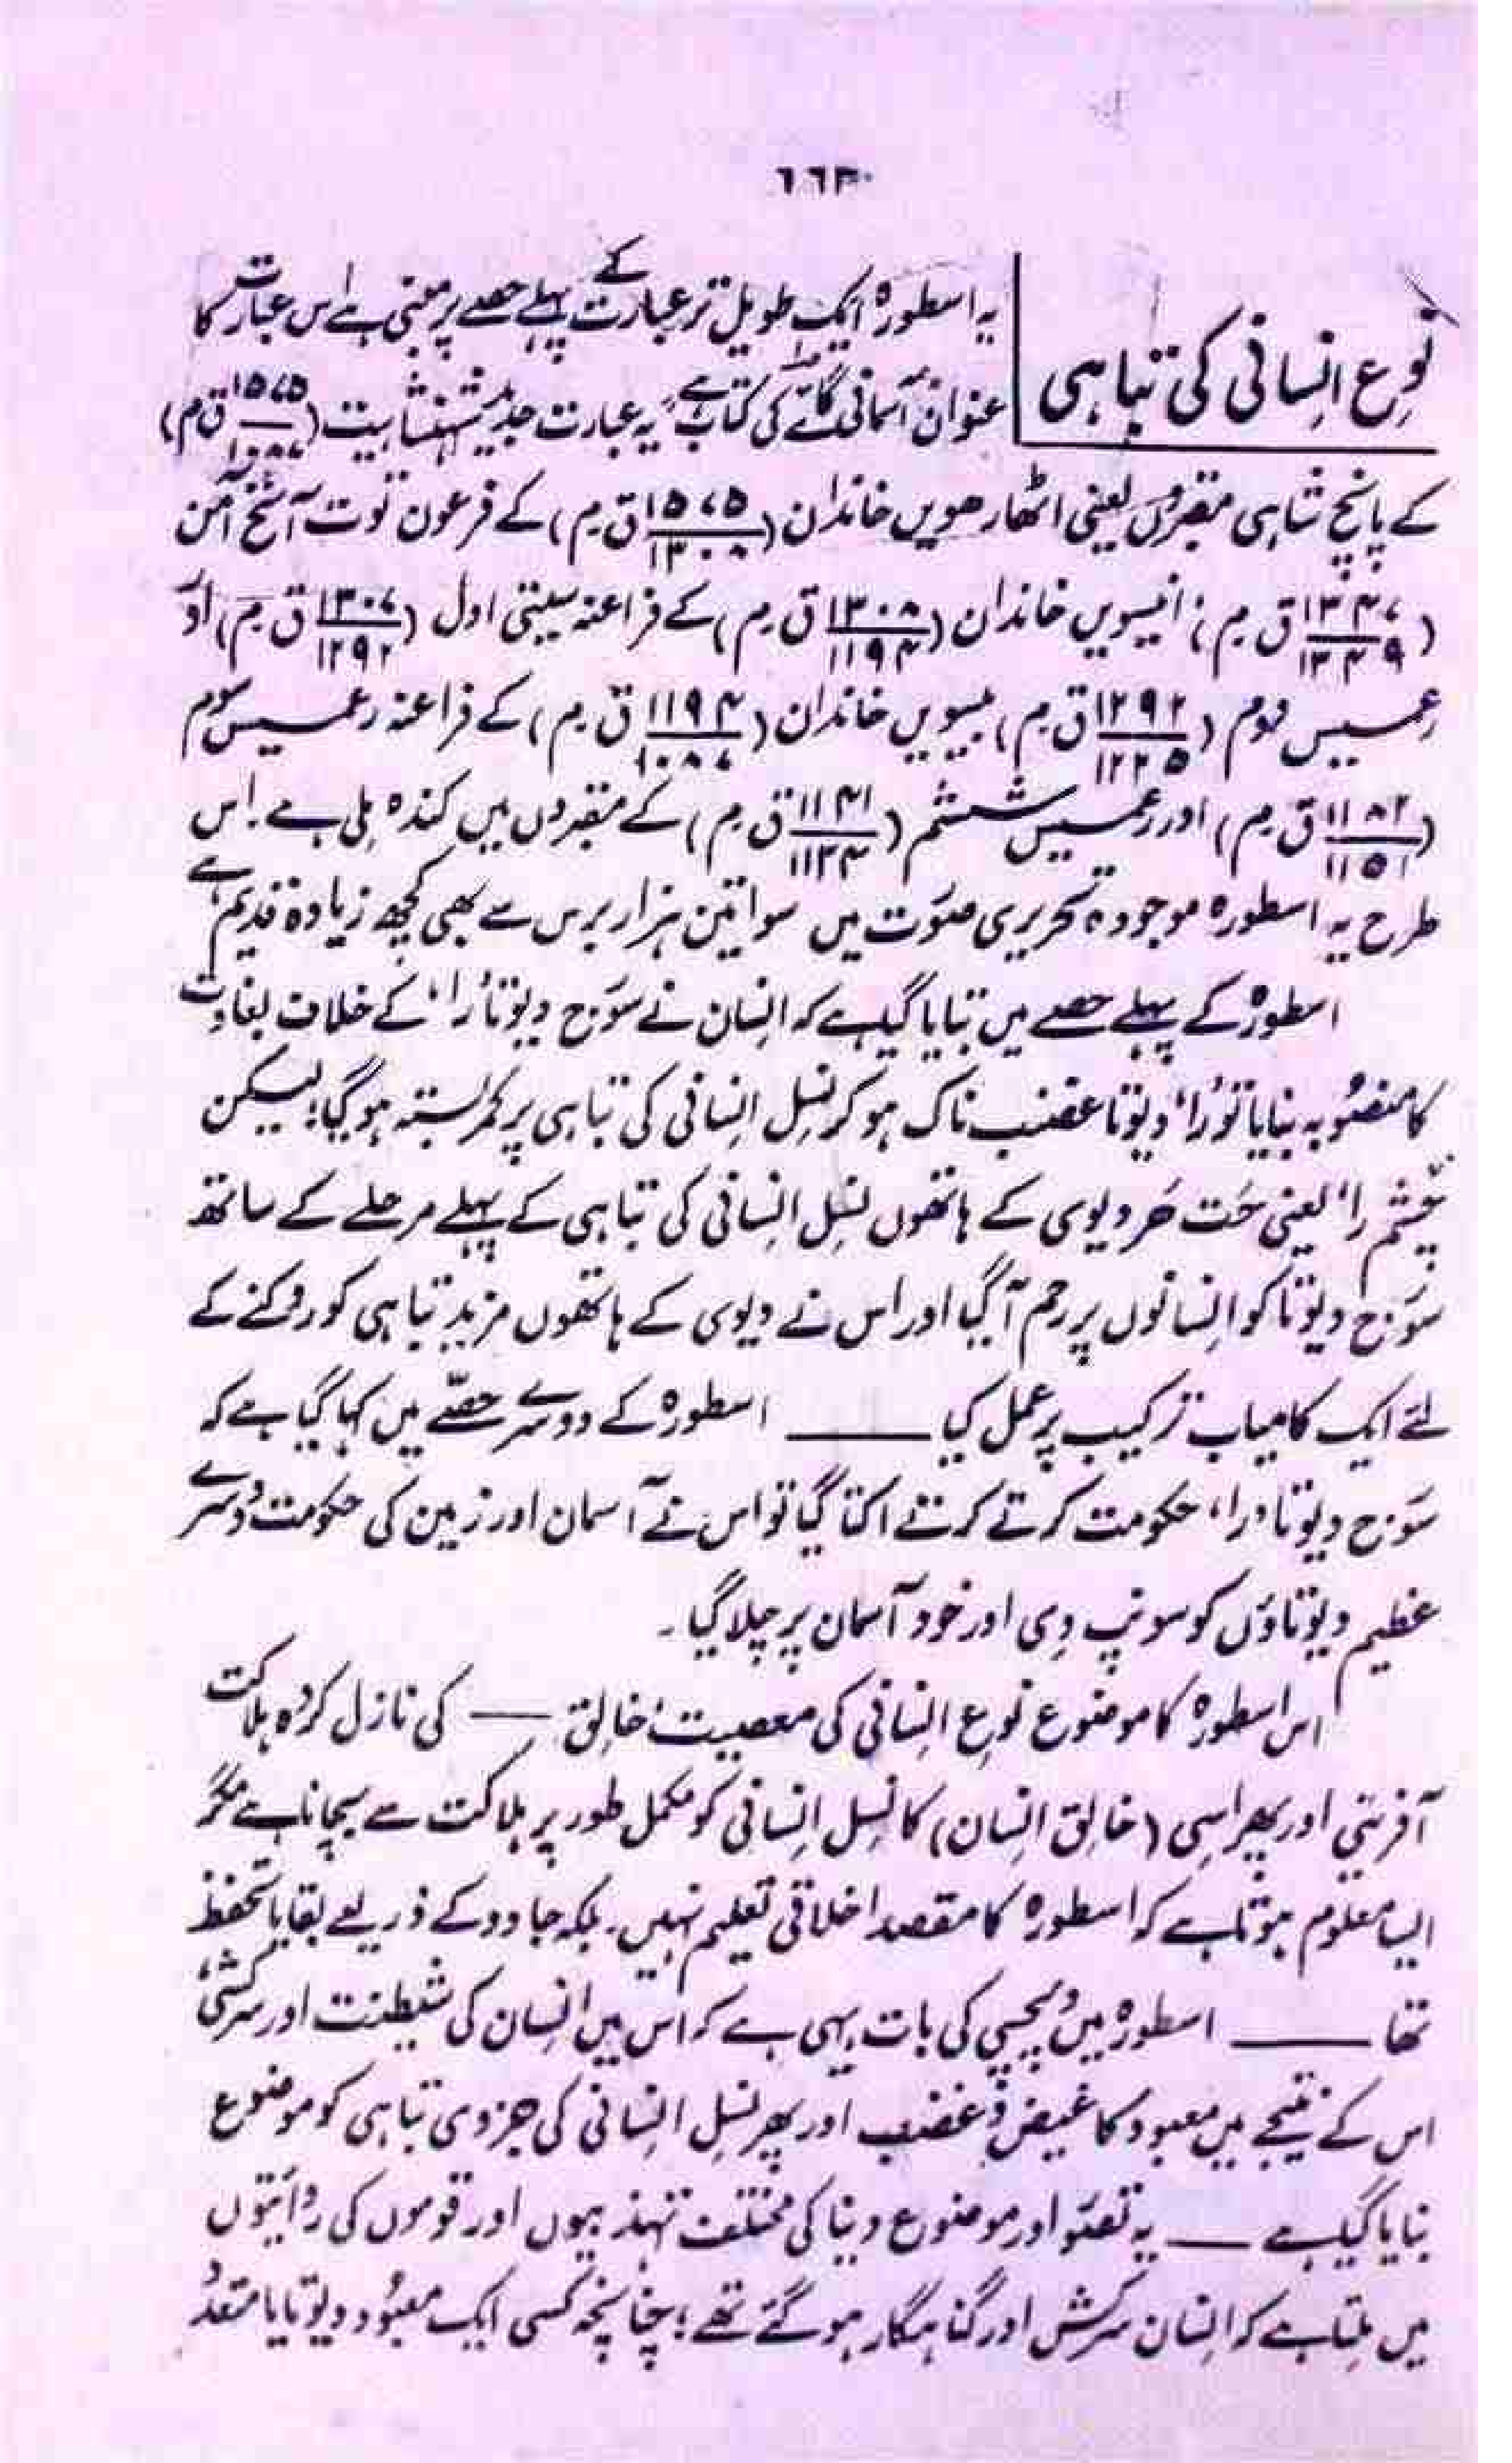 ۶۶۳
نوعِ انسانی کی تباہی
یہ اسطورہ ایک طویل تر عبارت کے پہلے حصے پر مبنی ہے اس عبارت کا
عنوان آسمانی گائے کی کتاب ہے یہ عبارت جدید شہنشاہیت (۱۵۷۵/۱۰۸۷ ق م)
کے پانچ شاہی مقبروں یعنی اٹھارھویں خاندان (۱۵۷۵/۱۳۰۸ ق۔م) کے فرعون توت آنخ آمن
(۱۳۴۷/۱۳۳۹ ق۔م)؛ انیسویں خاندان (۱۳۰۸/۱۱۹۴ ق۔م) کے فراعنہ سیتی اول (۱۳۰۷/۱۲۹۲ ق۔م) اور
رعمسیس دوم (۱۲۹۲/۱۲۲۵ ق۔م) بیسویں خاندان (۱۱۹۴/۱۰۸۷ ق۔م) کے فراعنہ رعمسیس سوم
(۱۱۸۲/۱۱۵۱ ق۔م) اور رعمسیس ششم (۱۱۴۱/۱۱۳۴ ق۔م) کے مقبروں میں کندہ ملی ہے۔ اس
طرح یہ اسطورہ موجودہ تحریری صورت میں سوا تین ہزار برس سے بھی کچھ زیادہ قدیم ہے
اسطورہ کے پہلے حصے میں بتایا گیا ہے کہ انسان نے سورج دیوتا 'را' کے خلاف بغاوت
کا منصوبہ بنایا تو 'را' دیوتا غضب ناک ہو کر نسل انسانی کی تباہی پر کمربستہ ہو گیا؛ لیکن
'چشم را' یعنی حَت حَر دیوی کے ہاتھوں نسلِ انسانی کی تباہی کے پہلے مرحلے کے ساتھ
سورج دیوتا کو انسانوں پر رحم آ گیا اور اس نے دیوی کے ہاتھوں مزید تباہی کو روکنے کے
لئے ایک کامیاب ترکیب پر عمل کیا ——— اسطورہ کے دوسرے حصّے میں کہا گیا ہے کہ
سورج دیوتا 'را' حکومت کرتے کرتے اکتا گیا تو اس نے آسمان اور زمین کی حکومت دوسرے
عظیم دیوتاؤں کو سونپ دی اور خود آسمان پر چلا گیا۔
اس اسطورہ کا موضوع نوعِ انسانی کی معصیت، خالِق —— کی نازل کردہ ہلاکت
آفرینی اور پھر اسی (خالِق انسان) کا نسلِ انسانی کو مکمل طور پر ہلاکت سے بچانا ہے مگر
ایسا معلوم ہوتا ہے کہ اسطورہ کا مقصد اخلاقی تعلیم نہیں۔ بلکہ جادو کے ذریعے بقا یا تحفظ
تھا ——— اسطورہ میں دلچسپی کی بات یہی ہے کہ اس میں انسان کی شیطنت اور سرکشی،
اس کے نتیجے میں معبود کا غیض و غضب اور پھر نسلِ انسانی کی جزوی تباہی کو موضوع
بنایا گیا ہے —— یہ تصور اور موضوع دنیا کی مختلف تہذیبوں اور قوموں کی روایتوں
میں ملتا ہے کہ انسان سرکش اور گناہگار ہو گئے تھے؛ چنانچہ کسی ایک معبود دیوتا یا متعدد